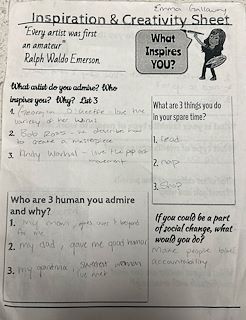 Emma Gallaway
Inspiration & Creativity Sheet
"Every artist was first
an amateur"
Ralph Waldo Emerson.
What
Inspires
YOU?
What artist do you admire? Who
inspires you? Why? List 3
1. Georgia O'Keeffe love the
variety of her works
2. Bob Ross - he describes how
to create a masterpiece
3. Andy Warhol - love the pop art
movement
What are 3 things you do
in your spare time?
1. read
2. nap
3. shop
Who are 3 human you admire
and why?
1. my mom, goes over & beyond
for me
2. my dad, gave me good humor
3. my grandma, sweetest woman
ive met
If you could be a part
of social change, what
would you do?
make people take
accountability